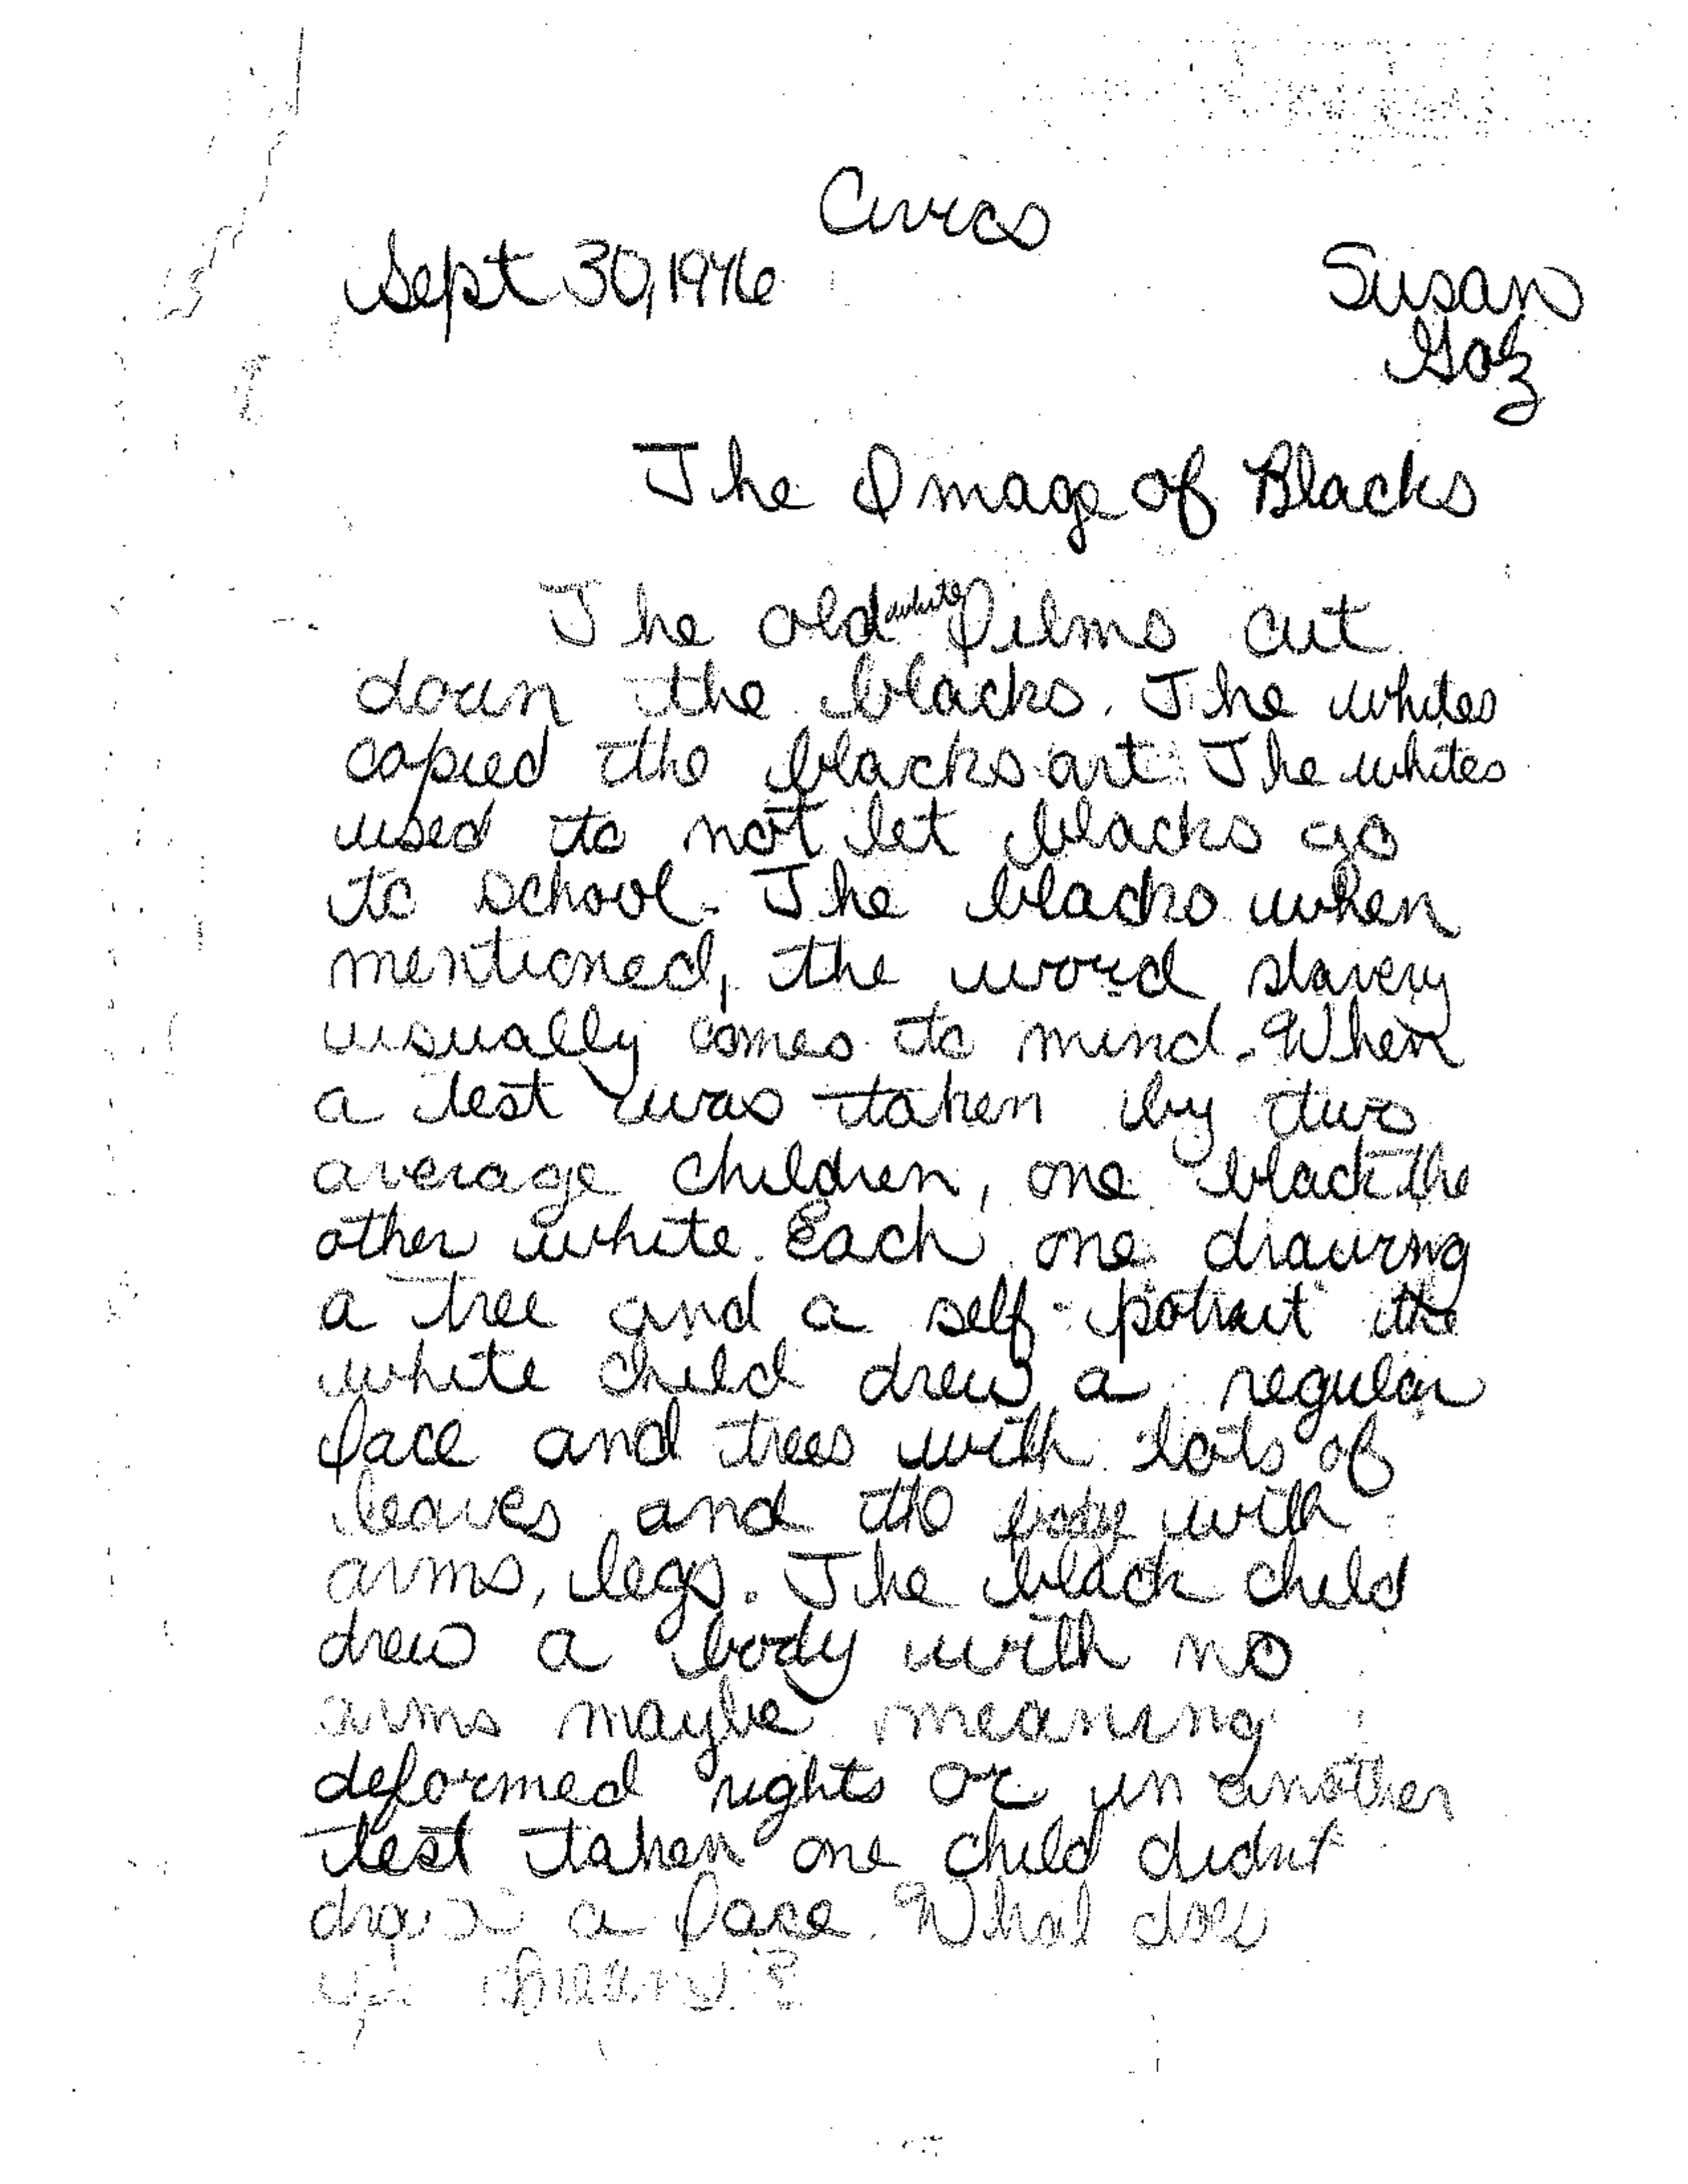 Civics
Sept 30, 1976
Susan
Goz
The Image of Blacks
The old white films cut
down the blacks. The whites
copied the blacks art. The whites
used to not let blacks go
to school. The blacks when
mentioned, the word slavery
usually comes to mind. When
a test was taken by two
average children, one black the
other white. Each one drawing
a tree and a self-potrait the
white child drew a regular
face and trees with lots of
leaves and the body with
arms, legs. The black child
drew a body with no
arms maybe meaning
deformed rights or in another
test taken one child didn't
draw a face. What does
mean?